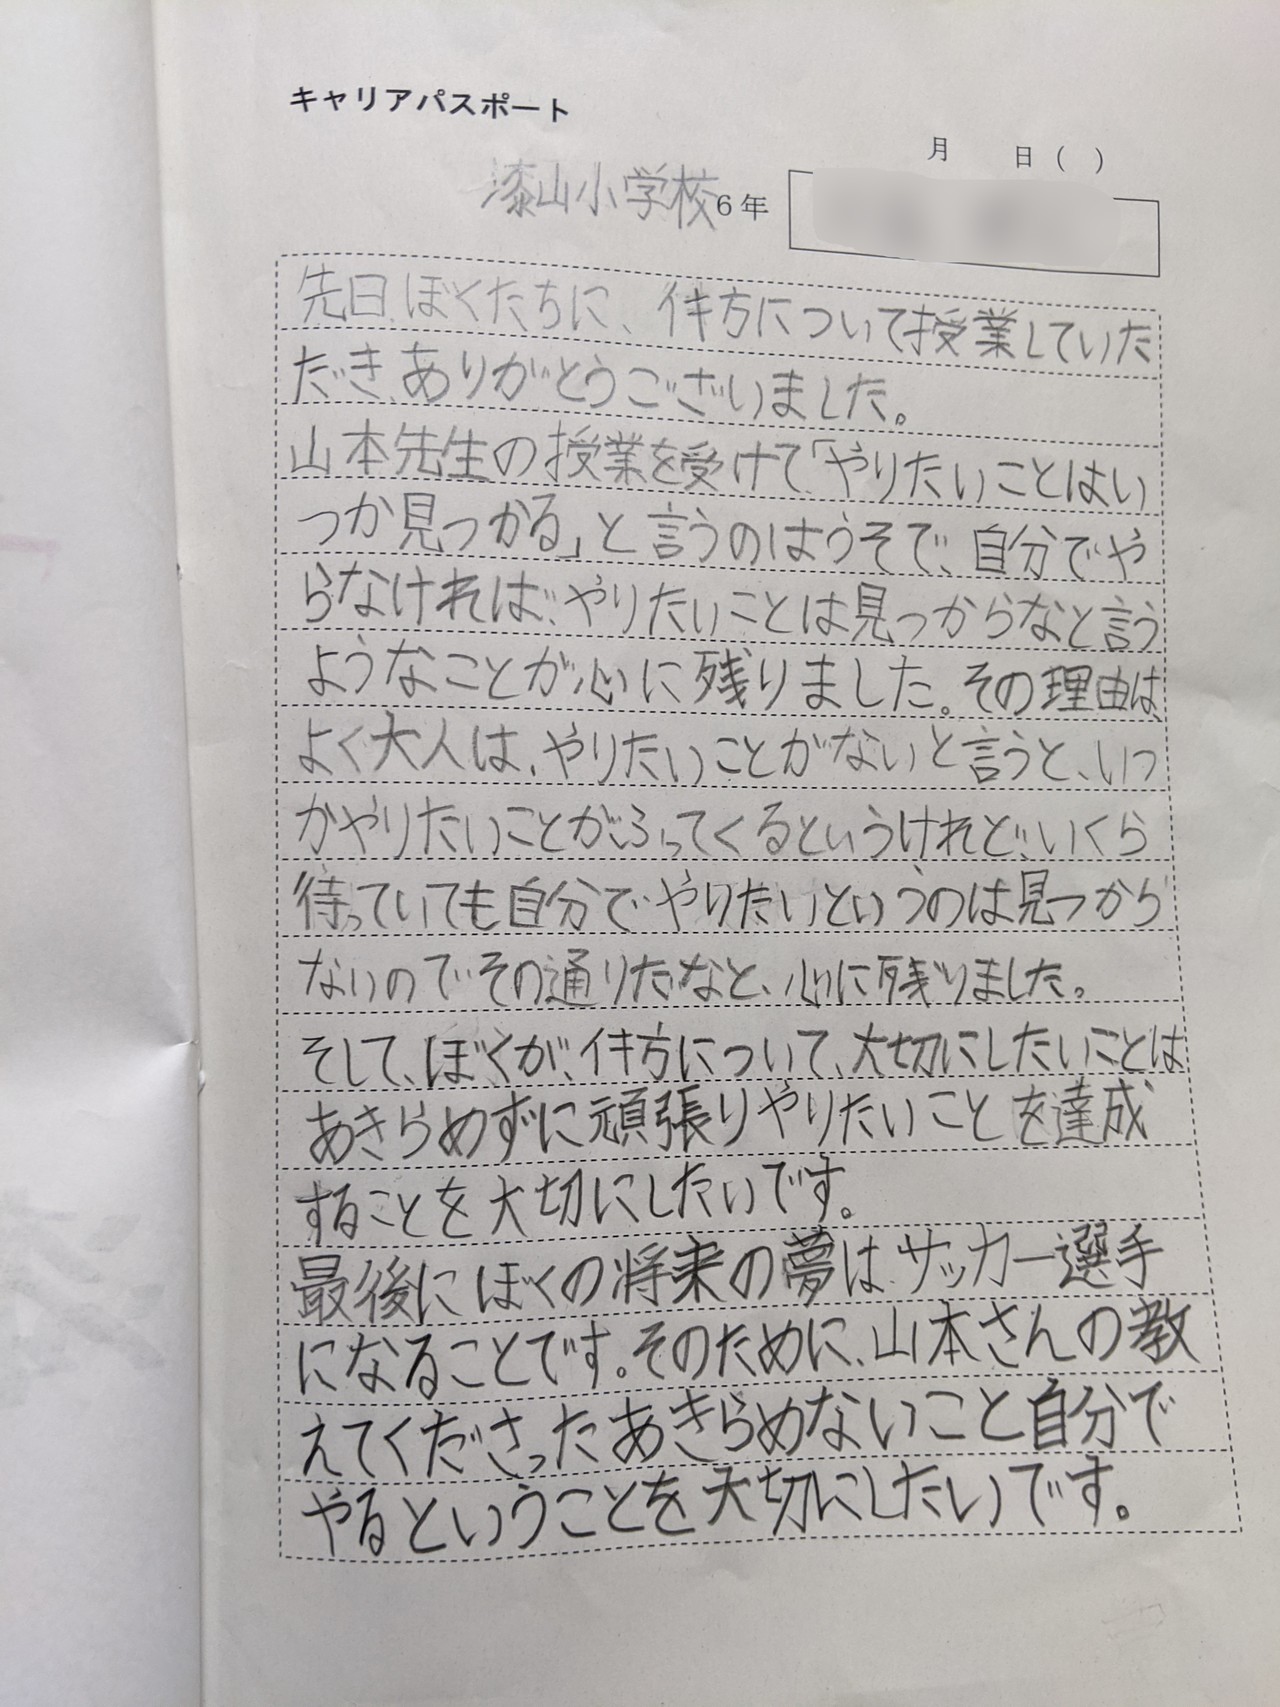 キャリアパスポート
月 日( )
漆山小学校 6年
先日、ぼくたちに、イキ方について授業していた
だき、ありがとうございました。
山本先生の授業を受けて「やりたいことはい
つか見つかる」と言うのはうそで、自分でや
らなければ、やりたいことは見つからなと言う
ようなことが心に残りました。その理由は、
よく大人は、やりたいことがないと言うと、いつ
かやりたいことがふってくるというけれど、いくら
待っていても自分でやりたいというのは見つから
ないのでその通りだなと、心に残りました。
そして、ぼくが、イキ方について、大切にしたいことは
あきらめずに頑張りやりたいことを達成
することを大切にしたいです。
最後にぼくの将来の夢は、サッカー選手
になることです。そのために、山本さんの教
えてくださったあきらめないこと自分で
やるということを大切にしたいです。